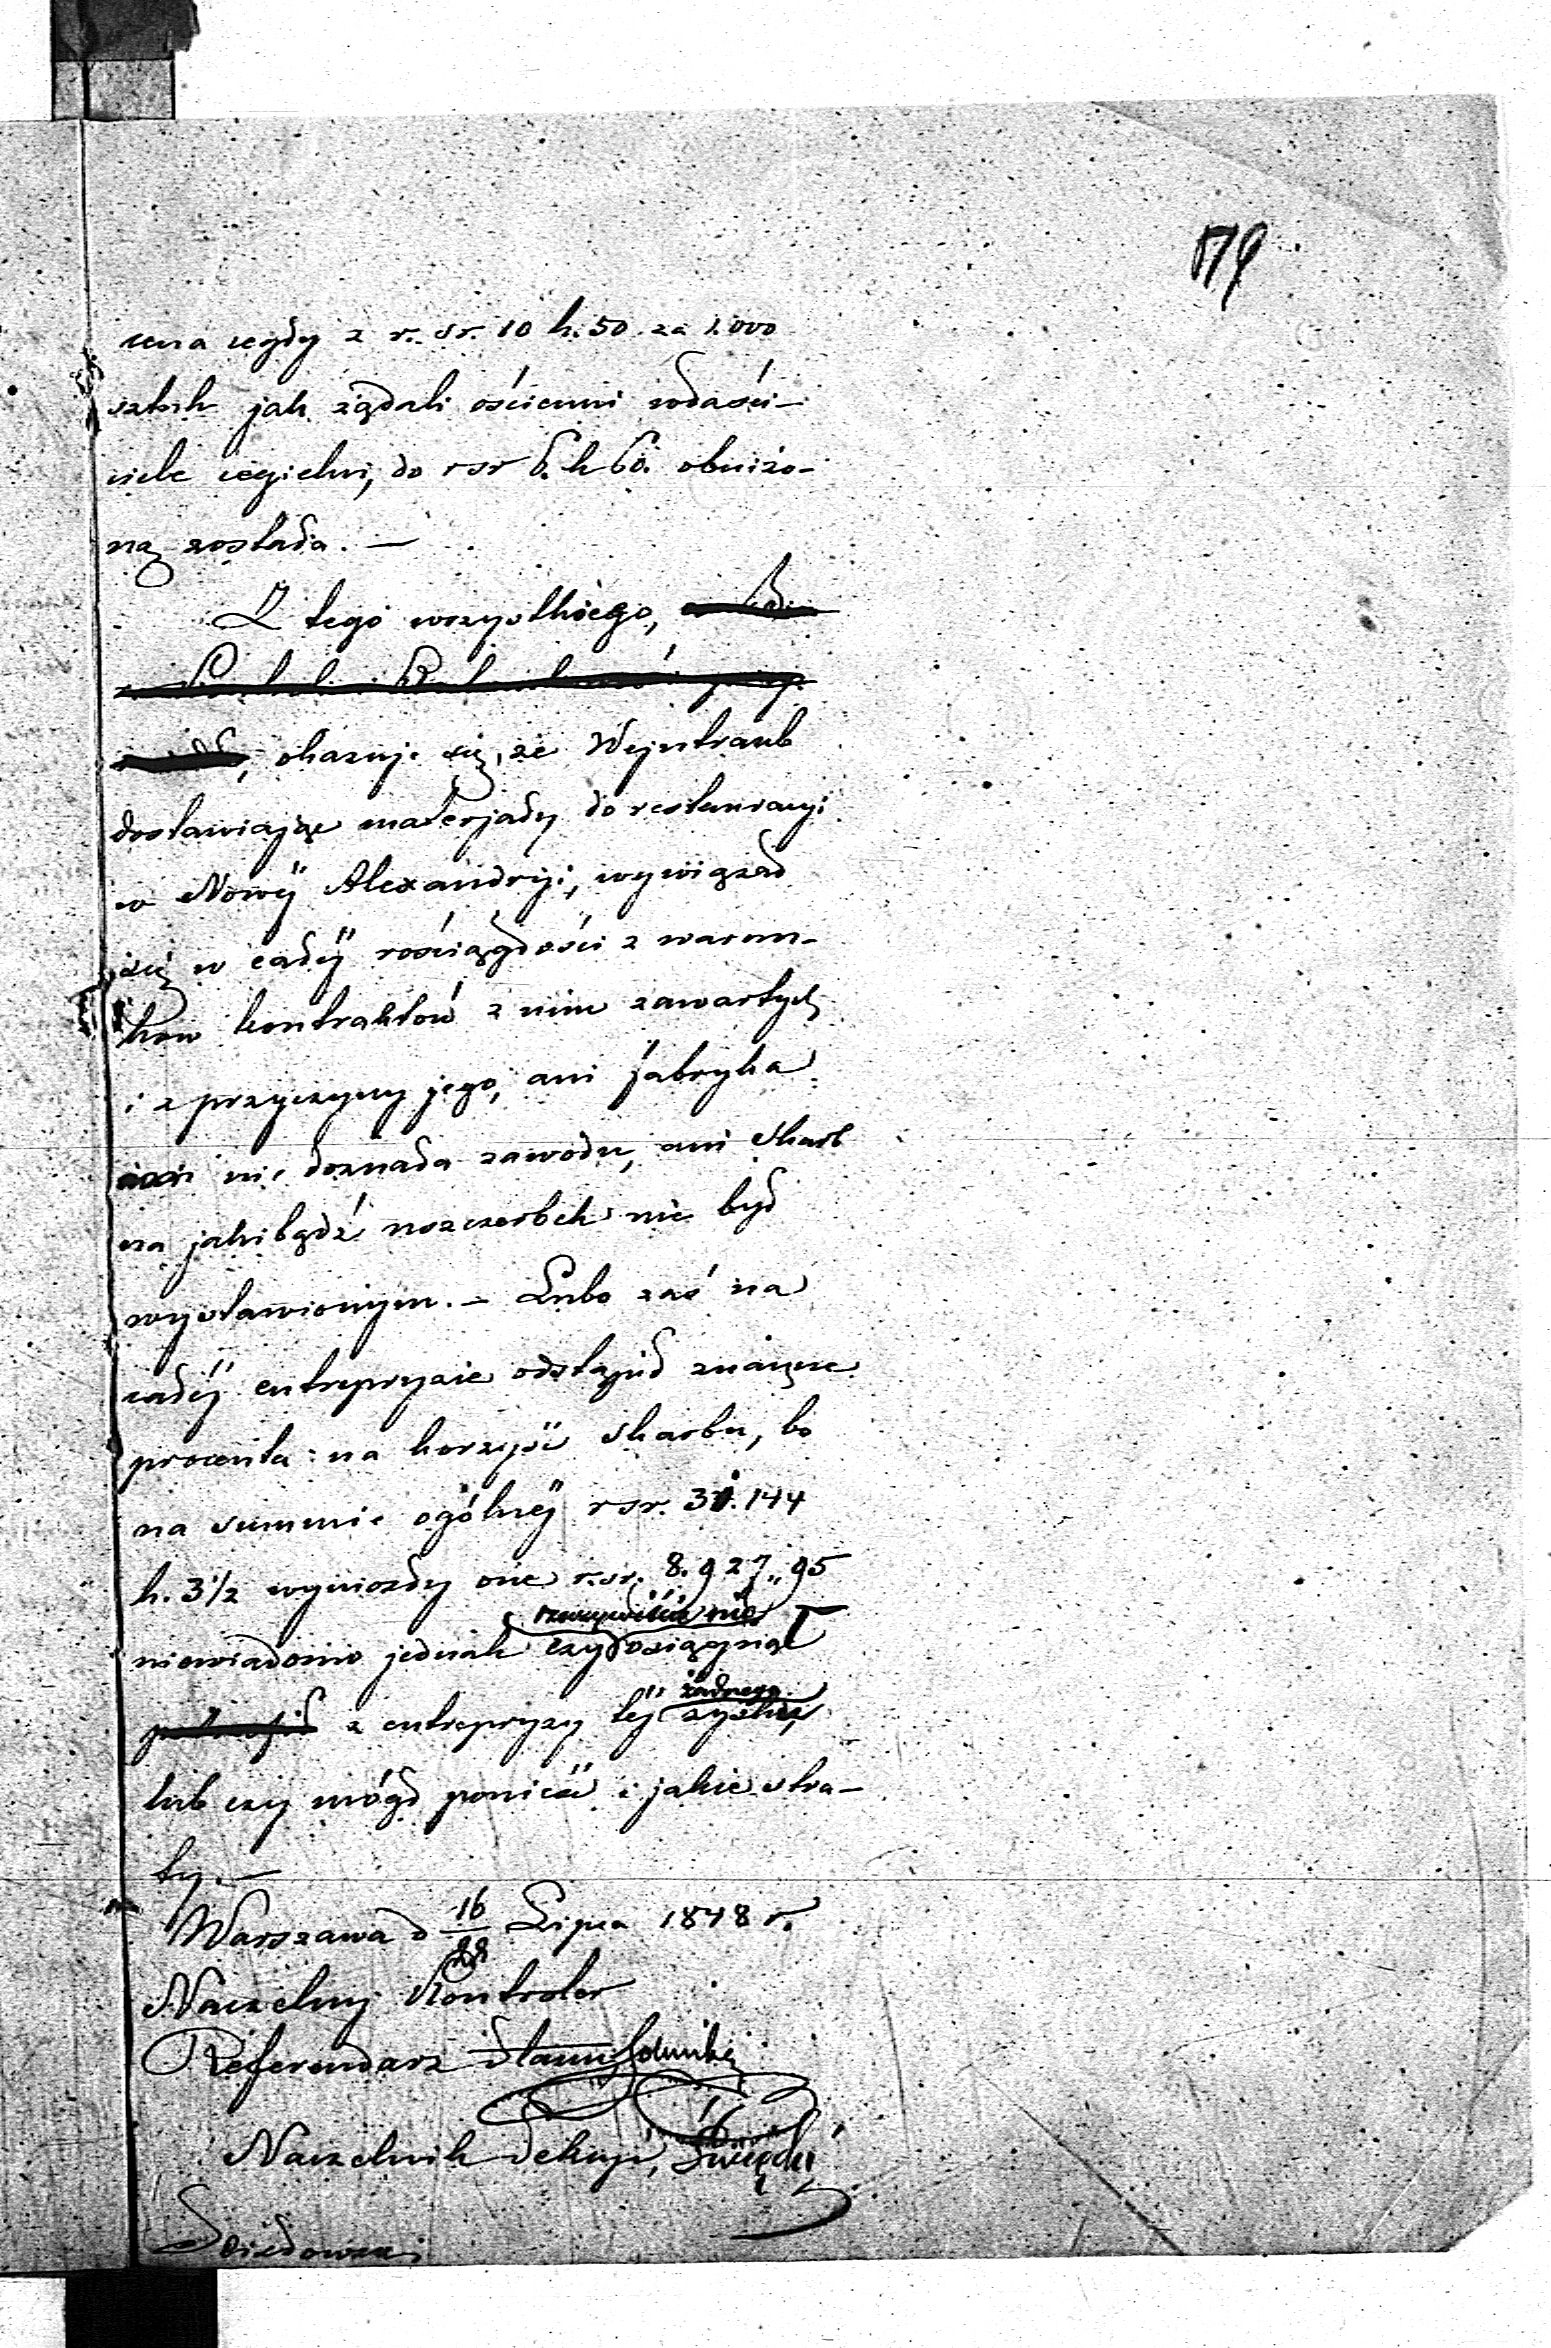 179
cena cegły z r. sr. 10 k. 50 za 1.000
sztuk jak żądali ościenni właści-
ciele cegielni, do rsr 6. k 60. obniżo-
ną została. —
Z tego wszystkiego,
okazuje się, że Wejntraub
dostawiając materjały do restauracyi
w Nowéj Alexandryi, wywiązał
się w całéj rościągłości z warun-
ków kontraktów z nim zawartych
i z przyczyny jego, ani fabryka
nie doznała zawodu, ani Skarb
na jakibądź uszczerbek nie był
wystawionym. — Lubo zaś na
całéj entrepryzie odstąpił znaczne
procenta na korzyść Skarbu, bo
na summie ogólnéj rsr. 31.144
k. 3 1/2 wyniosły one r.sr. 8.927„95
rzeczywiście nie
niewiadomo jednak czy osiągnął
żadnego
potrafił z entrepryzy téj zysku,
lub czy mógł ponieść i jakie stra-
ty. —
Warszawa d 16/28 Lipca 1848 r.
Naczelny Kontroler
Referendarz
Naczelnik Sekcyi, Święcki